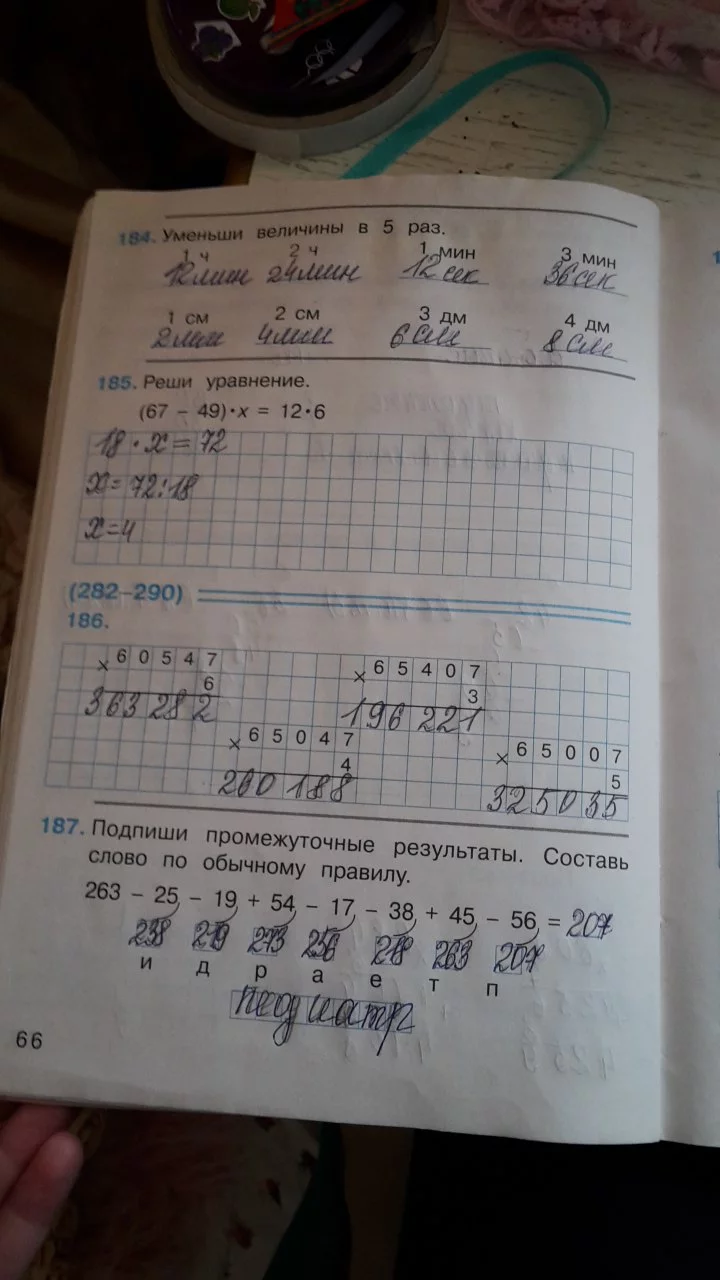 184. Уменьши величины в 5 раз.
1 ч 2 ч 1 мин 3 мин
12 мин 24 мин 12 сек 36 сек
1 см 2 см 3 дм 4 дм
2 мм 4 мм 6 см 8 см
185. Реши уравнение.
(67 – 49)·x = 12·6
18·x=72
x=72:18
x=4
(282–290)
186.
× 60547 × 65407
6 3
363282 196221
× 65047 × 65007
4 5
260188 325035
187. Подпиши промежуточные результаты. Составь
слово по обычному правилу.
263 – 25 – 19 + 54 – 17 – 38 + 45 – 56 = 207
238 219 273 256 218 263 207
и д р а е т п
педиатр
66